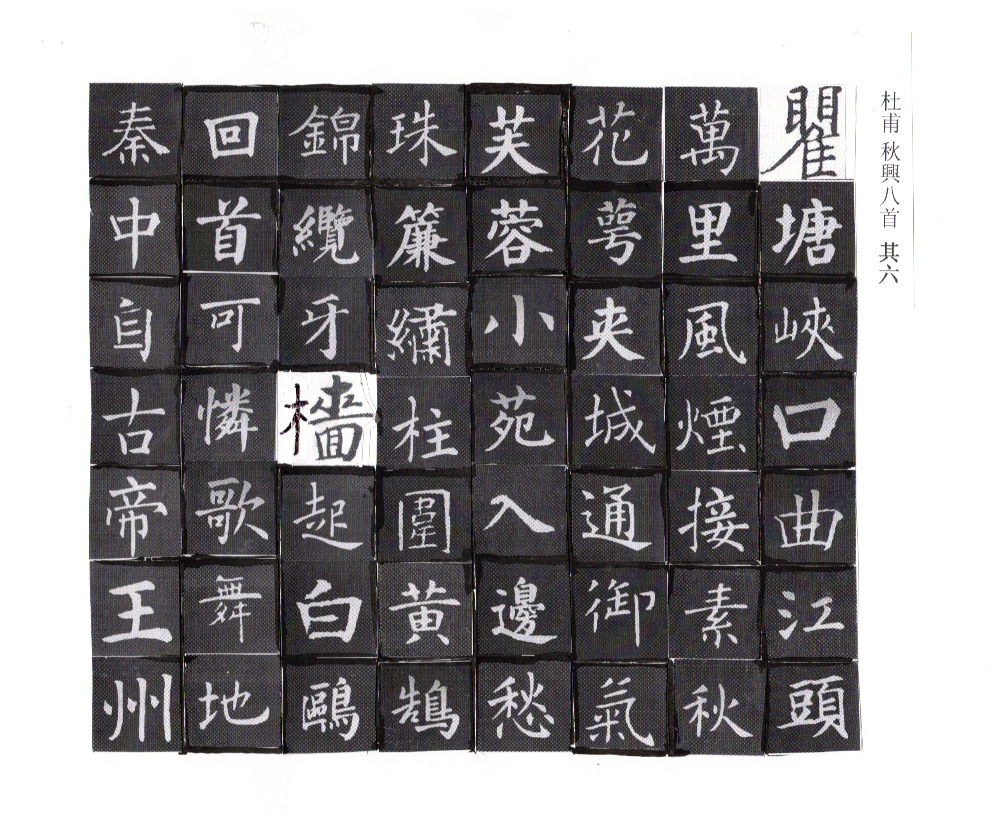 杜甫 秋興八首 其六
瞿塘峽口曲江頭
萬里風煙接素秋
花萼夾城通御氣
芙蓉小苑入邊愁
珠簾繡柱圍黃鵠
錦纜牙檣起白鷗
回首可憐歌舞地
秦中自古帝王州